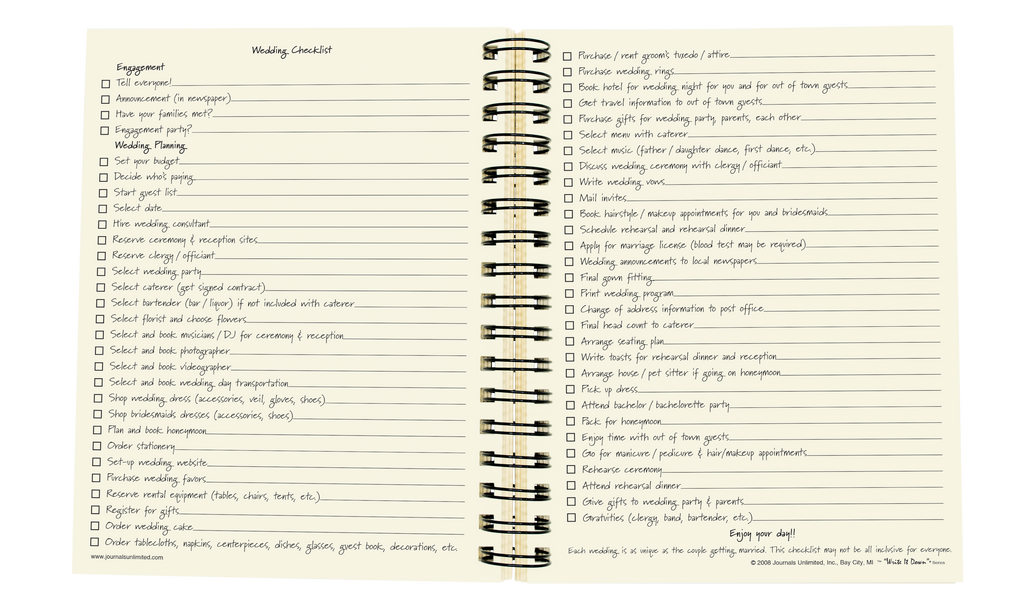 Wedding Checklist
Engagement
Tell everyone!
Announcement (in newspaper)
Have your families met?
Engagement party?
Wedding Planning
Set your budget
Decide who's paying
Start guest list
Select date
Hire wedding consultant
Reserve ceremony & reception sites
Reserve clergy / officiant
Select wedding party
Select caterer (get signed contract)
Select bartender (bar / liquor) if not included with caterer
Select florist and choose flowers
Select and book musicians / DJ for ceremony & reception
Select and book photographer
Select and book videographer
Select and book wedding day transportation
Shop wedding dress (accessories, veil, gloves, shoes)
Shop bridesmaids dresses (accessories, shoes)
Plan and book honeymoon
Order stationery
Set-up wedding website
Purchase wedding favors
Reserve rental equipment (tables, chairs, tents, etc.)
Register for gifts
Order wedding cake
Order tablecloths, napkins, centerpieces, dishes, glasses, guest book, decorations, etc.
www.journalsunlimited.com
Purchase / rent groom's tuxedo / attire
Purchase wedding rings
Book hotel for wedding night for you and for out of town guests
Get travel information to out of town guests
Purchase gifts for wedding party, parents, each other
Select menu with caterer
Select music (father / daughter dance, first dance, etc.)
Discuss wedding ceremony with clergy / officiant
Write wedding vows
Mail invites
Book hairstyle / makeup appointments for you and bridesmaids
Schedule rehearsal and rehearsal dinner
Apply for marriage license (blood test may be required)
Wedding announcements to local newspapers
Final gown fitting
Print wedding program
Change of address information to post office
Final head count to caterer
Arrange seating plan
Write toasts for rehearsal dinner and reception
Arrange house / pet sitter if going on honeymoon
Pick up dress
Attend bachelor / bachelorette party
Pack for honeymoon
Enjoy time with out of town guests
Go for manicure / pedicure & hair/makeup appointments
Rehearse ceremony
Attend rehearsal dinner
Give gifts to wedding party & parents
Gratuities (clergy, band, bartender, etc.)
Enjoy your day!!
Each wedding is as unique as the couple getting married. This checklist may not be all inclusive for everyone.
© 2008 Journals Unlimited, Inc., Bay City, MI ~ "Write It Down" Series